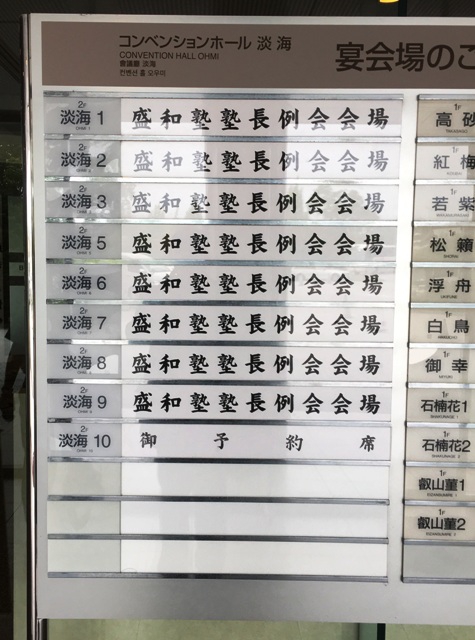 コンベンションホール 淡海
CONVENTION HALL OHMI
會議廳 淡海
컨벤션 홀 오우미
宴会場のご
2F
淡海 1 盛和塾塾長例会会場
OHMI 1
2F
淡海 2 盛和塾塾長例会会場
OHMI 2
2F
淡海 3 盛和塾塾長例会会場
OHMI 3
2F
淡海 5 盛和塾塾長例会会場
OHMI 5
2F
淡海 6 盛和塾塾長例会会場
OHMI 6
2F
淡海 7 盛和塾塾長例会会場
OHMI 7
2F
淡海 8 盛和塾塾長例会会場
OHMI 8
2F
淡海 9 盛和塾塾長例会会場
OHMI 9
2F
淡海 10 御予約席
OHMI 10
1F
高砂
1F
紅梅
1F
若紫
1F
松籟
1F
浮舟
UKIFUNE
1F
白鳥
1F
御幸
MIYUKI
1F
石楠花1
SHAKUNAGE 1
1F
石楠花2
SHAKUNAGE 2
1F
叡山菫1
EIZANSUMIRE 1
1F
叡山菫2
EIZANSUMIRE 2